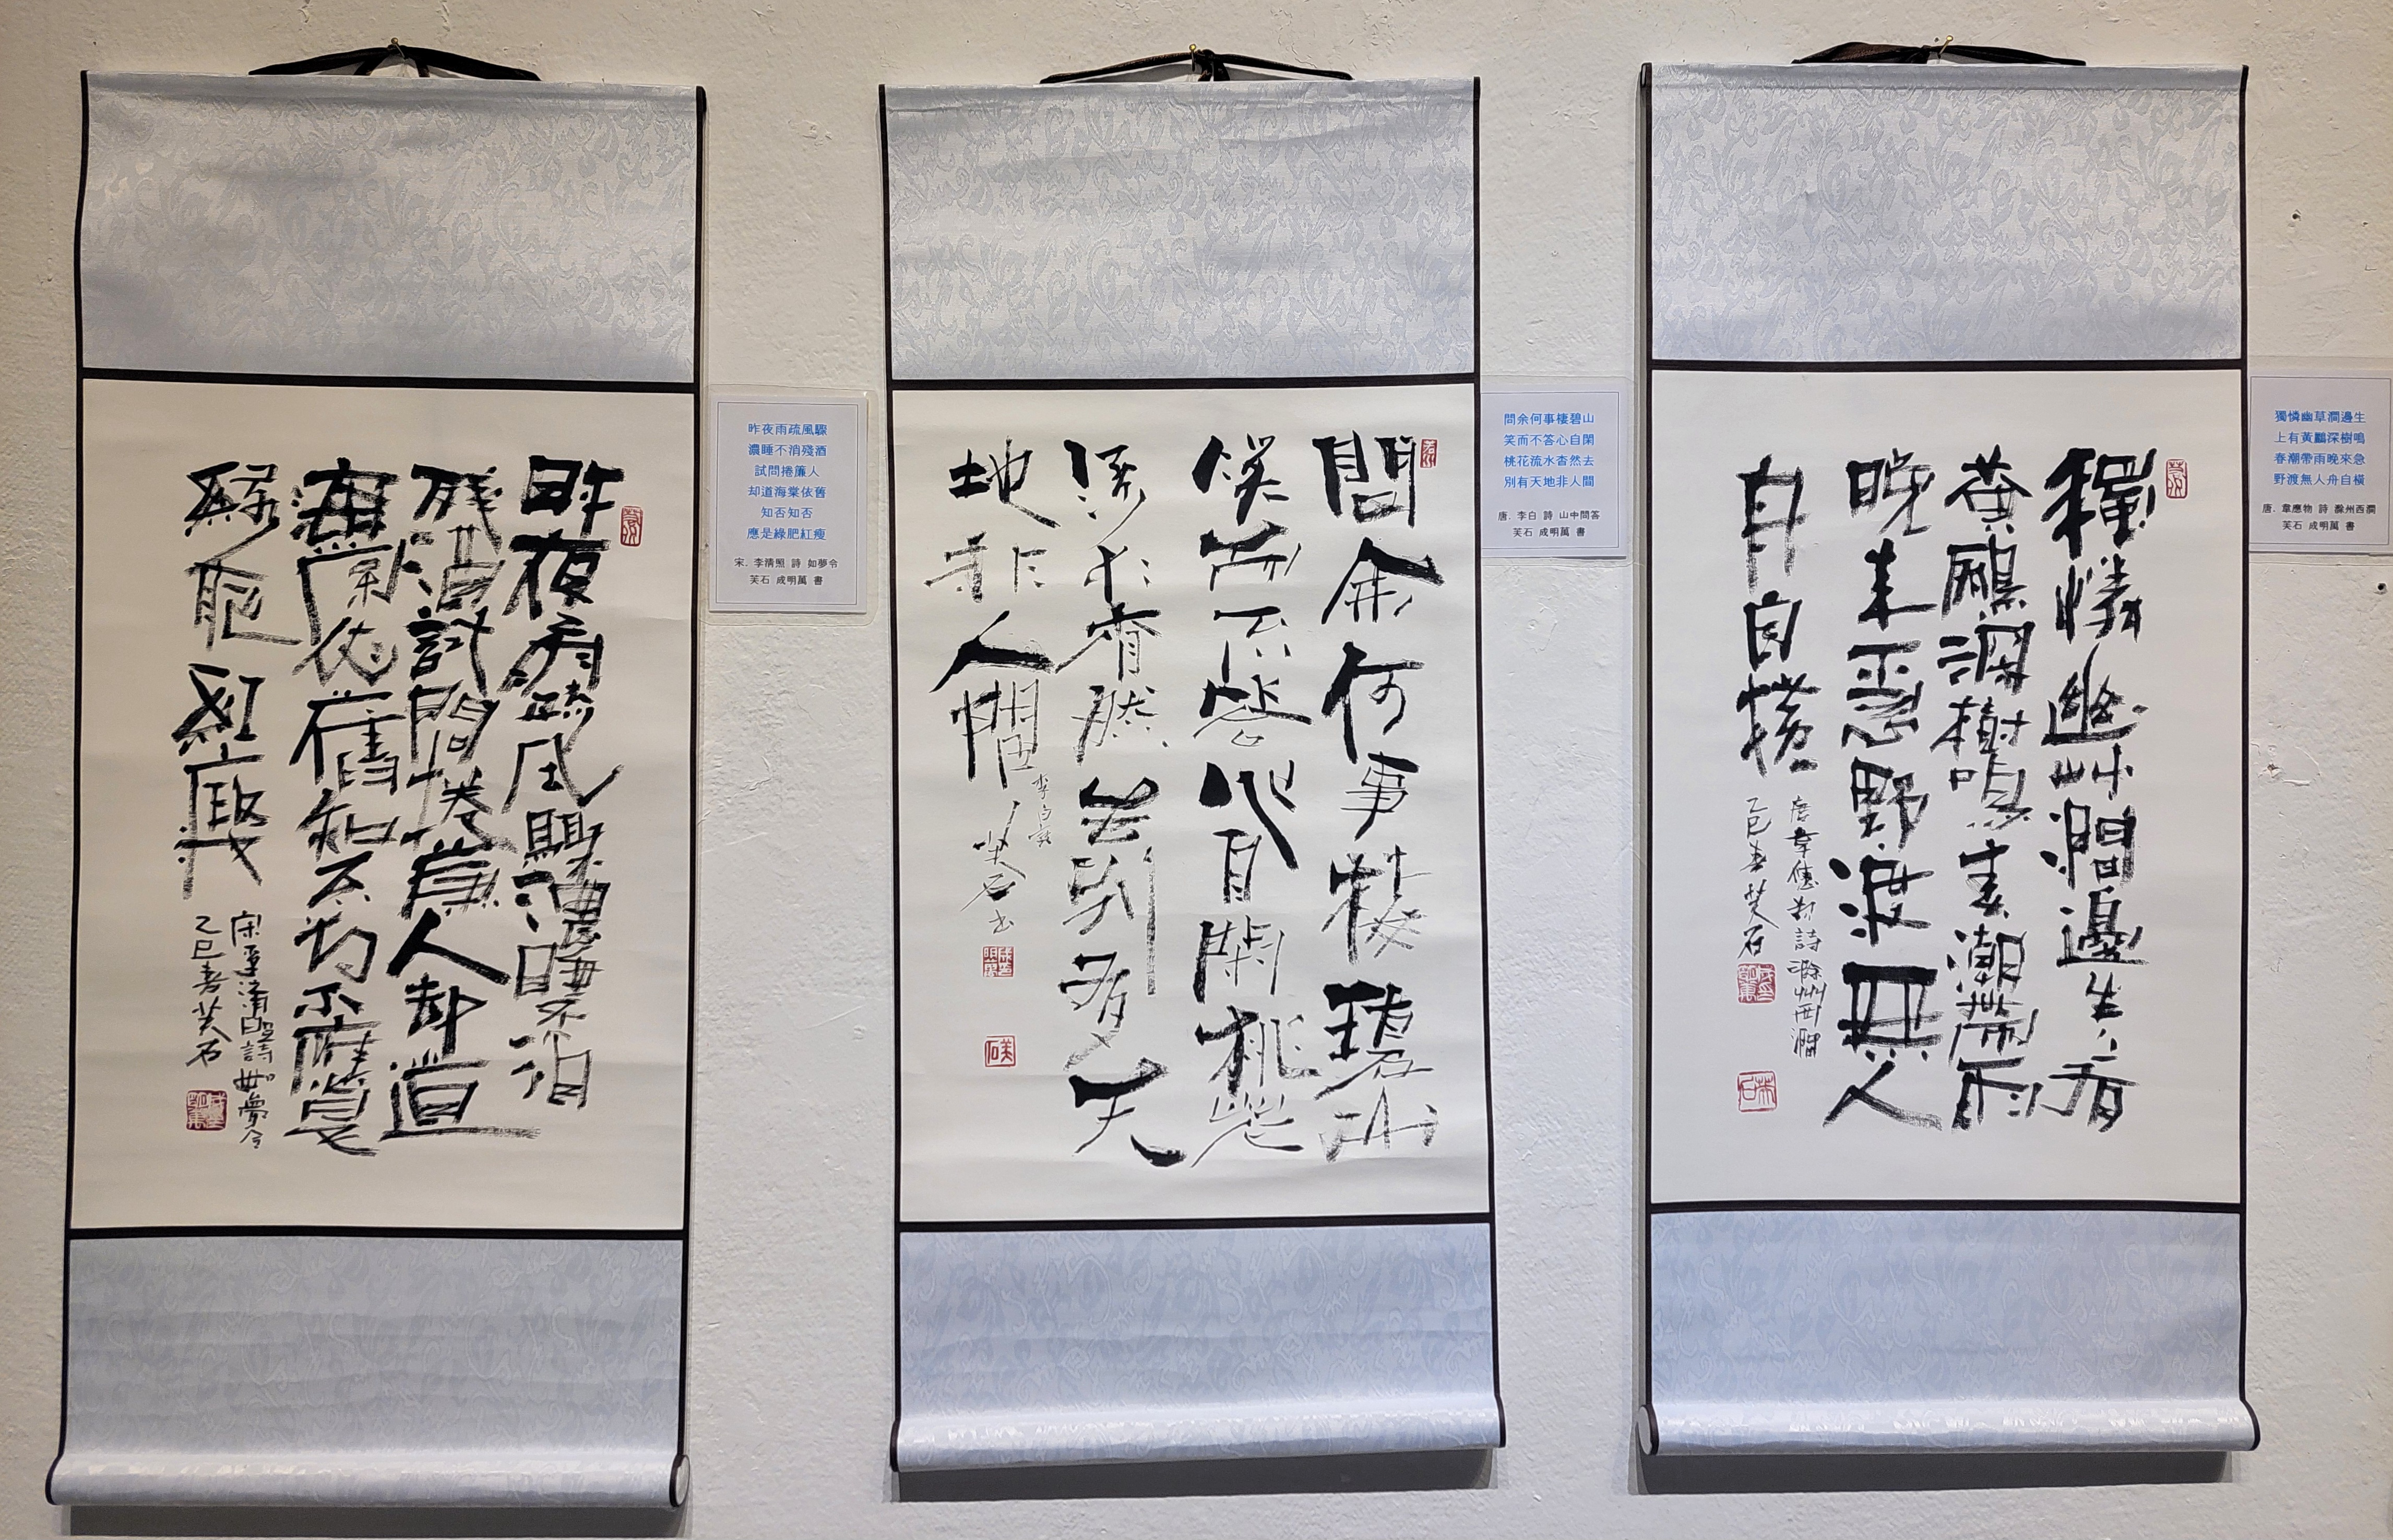 昨夜雨疏風驟濃睡不消
殘酒試問捲簾人却道
海棠依舊知否知否應是
綠肥紅瘦
宋李清照詩如夢令
乙巳春芙石
昨夜雨疏風驟
濃睡不消殘酒
試問捲簾人
却道海棠依舊
知否知否
應是綠肥紅瘦
宋. 李清照 詩 如夢令
芙石 成明萬 書
問余何事棲碧山
笑而不答心自閑桃花
流水杳然去別有天
地非人間
李白詩
芙石書
芙石
問余何事棲碧山
笑而不答心自閑
桃花流水杳然去
別有天地非人間
唐. 李白 詩 山中問答
芙石 成明萬 書
獨憐幽草澗邊生上有
黃鸝深樹鳴春潮帶雨
晚來急野渡無人
舟自橫
唐韋應物詩滁州西澗
乙巳春芙石
芙石
獨憐幽草澗邊生
上有黃鸝深樹鳴
春潮帶雨晚來急
野渡無人舟自橫
唐. 韋應物 詩 滁州西澗
芙石 成明萬 書